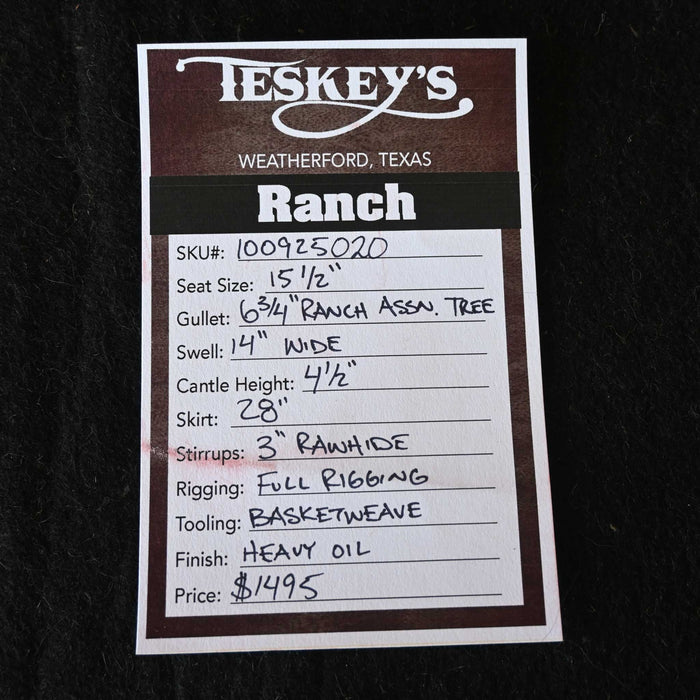 TESKEY'S
WEATHERFORD, TEXAS
Ranch
SKU#: 100925020
Seat Size: 15 1/2"
Gullet: 6 3/4" RANCH ASSN. TREE
Swell: 14" WIDE
Cantle Height: 4 1/2"
Skirt: 28"
Stirrups: 3" RAWHIDE
Rigging: FULL RIGGING
Tooling: BASKETWEAVE
Finish: HEAVY OIL
Price: $1495